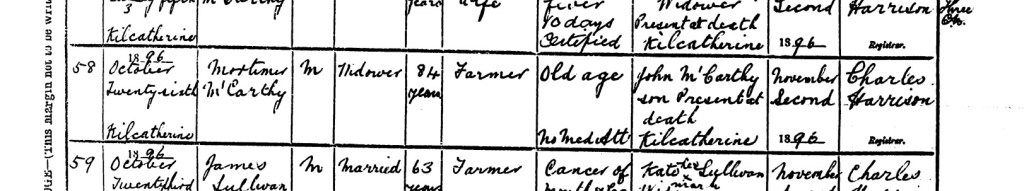 3 M'Carthy years wife fever Widower Second Harrison three
10 days Present at death
Kilcatherine Certified Kilcatherine 1896 Registrar.
58 1896 October Mortimer M Widower 84 Farmer Old age John McCarthy November Charles
Twenty sixth McCarthy years son Present at Second Harrison
death
Kilcatherine No Med Att Kilcatherine 1896 Registrar.
59 1896 October James M Married 63 Farmer Cancer of Kate her Sullivan November Charles
Twenty third Sullivan years mouth x mark
(This margin not to be